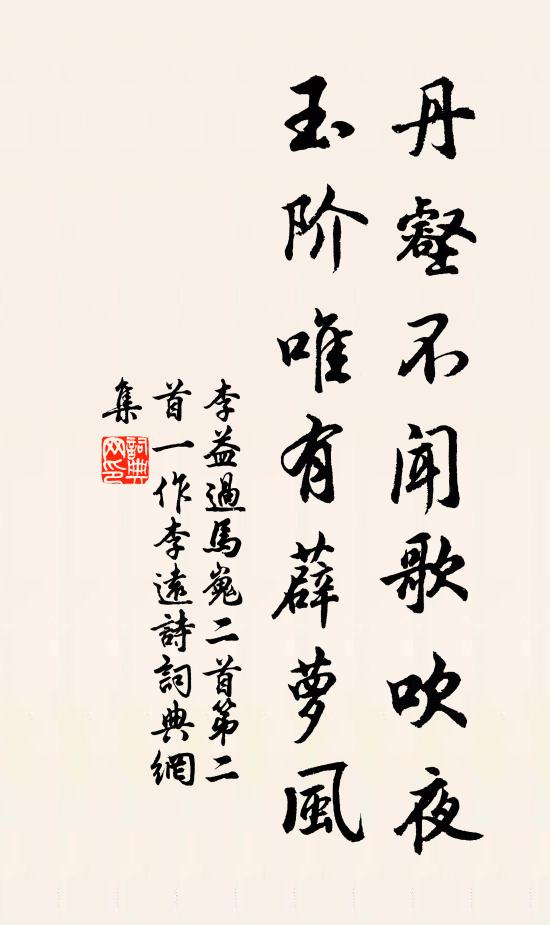 丹壑不闻歌吹夜
玉阶唯有薜萝風
李益過馬嵬二首第二
首一作李遠詩詞典網
集
詞典
网印